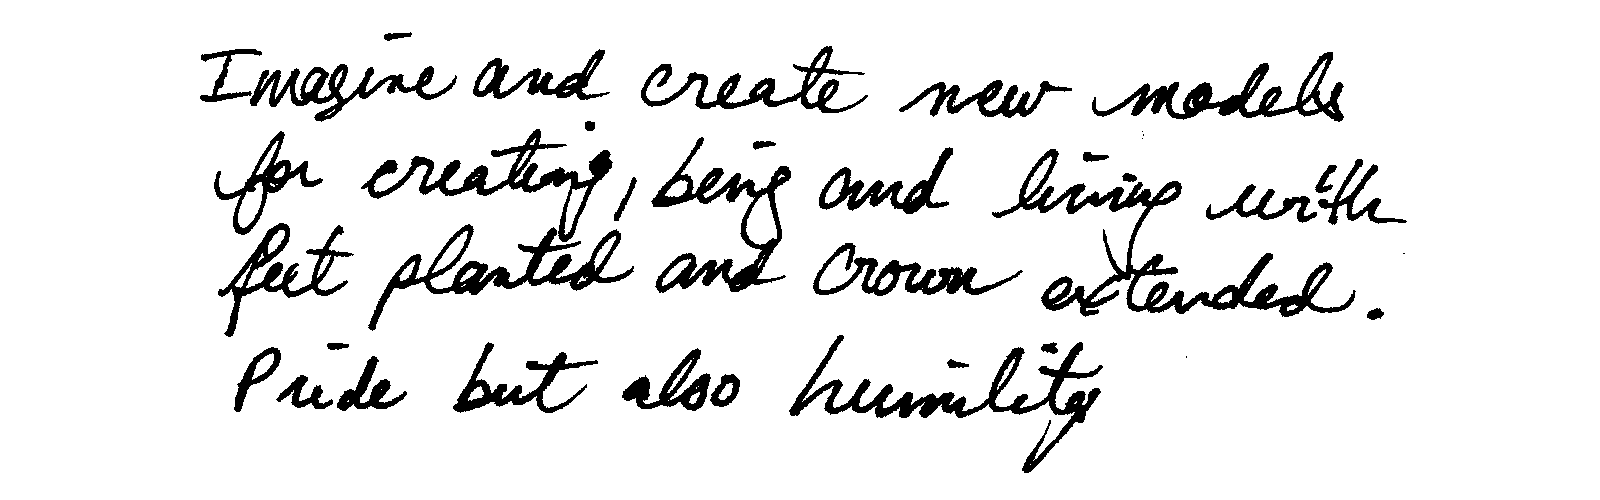 Imagine and create new models
for creating, being and living with
feet planted and crown extended.
Pride but also humility